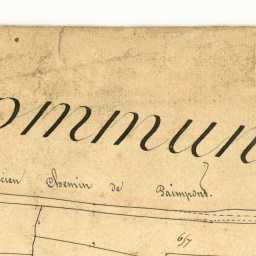 ommun
cien Chemin de Paimpont.
617